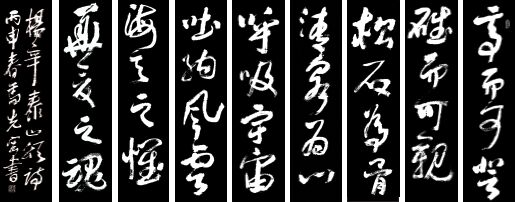 高而可登
雄而可親
松石為骨
清泉為心
呼吸宇宙
吐納風雲
海天之懷
華夏之魂
楊辛泰山頌詩
丙申春書